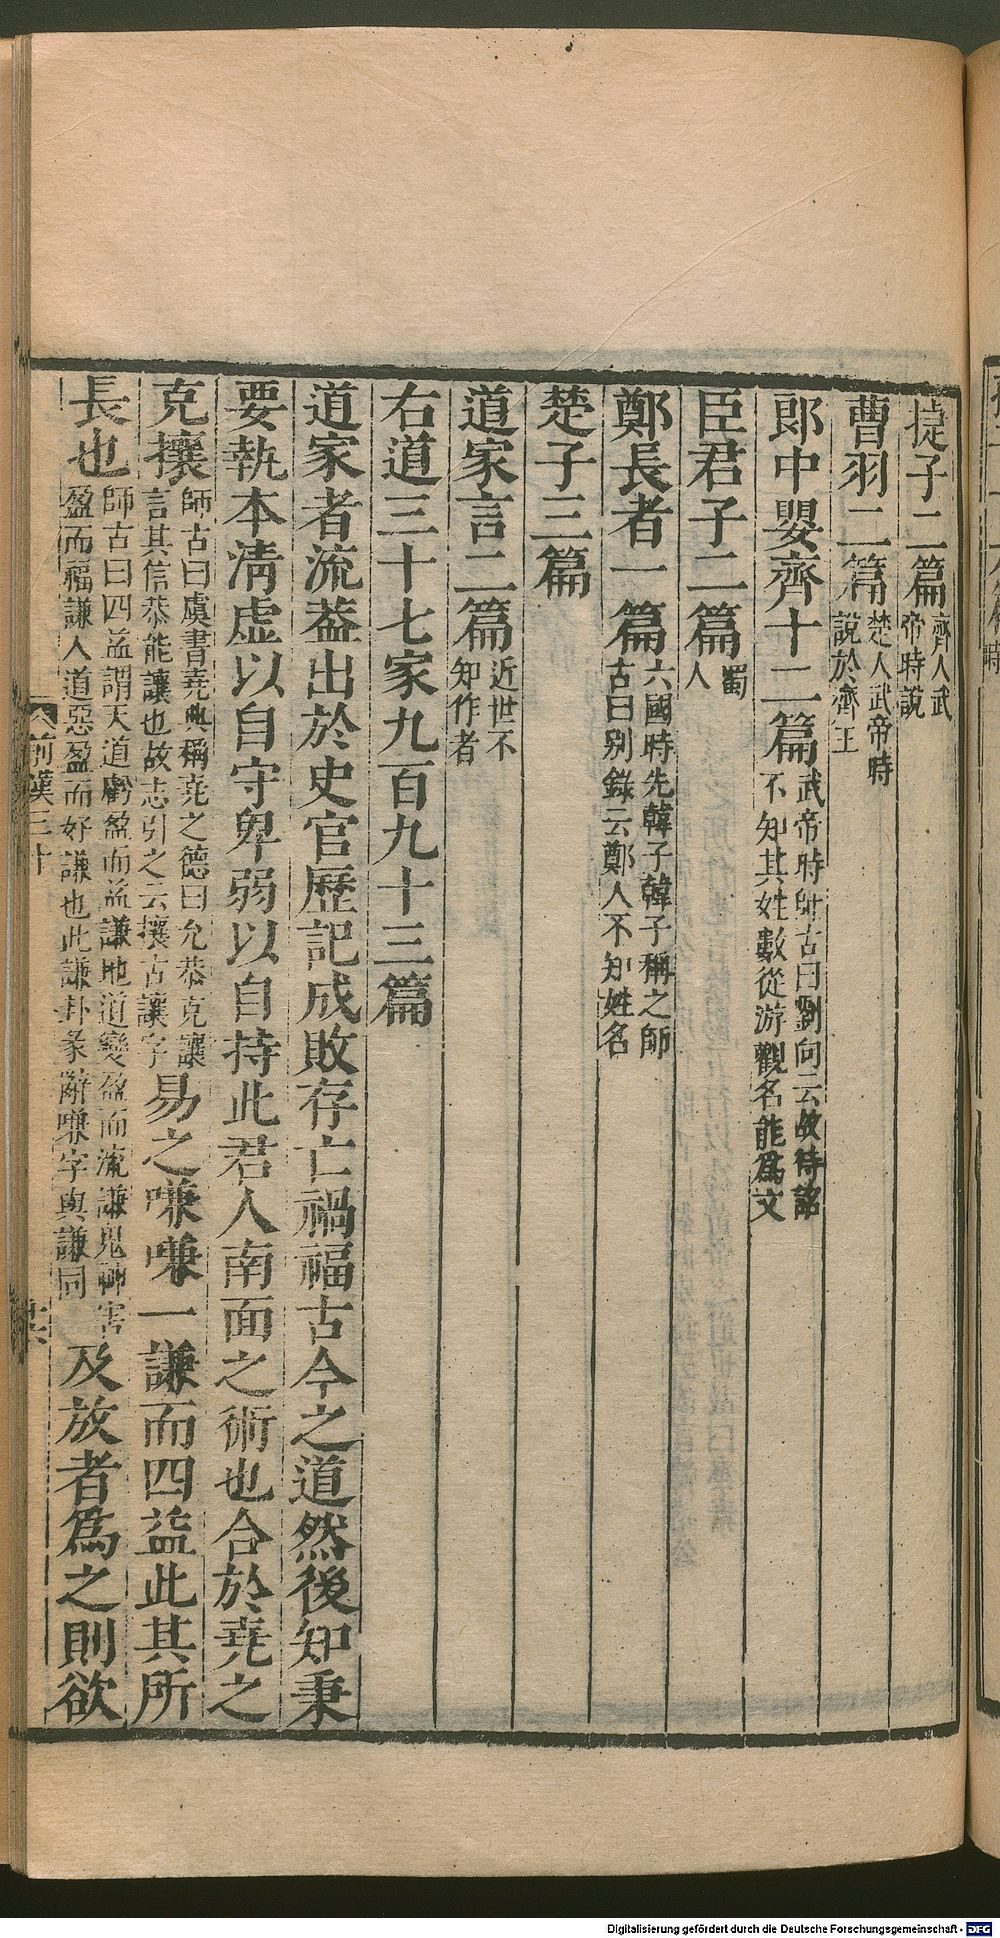 捷子二篇齊人武帝時說
曹羽二篇楚人武帝時說於齊王
郎中嬰齊十二篇武帝時師古曰劉向云故待詔不知其姓數從游觀名能爲文
臣君子二篇蜀人
鄭長者一篇六國時先韓子韓子稱之師古曰别錄云鄭人不知姓名
楚子三篇
道家言二篇近世不知作者
右道三十七家九百九十三篇
道家者流葢出於史官歷記成敗存亡禍福古今之道然後知秉
要執本清虛以自守卑弱以自持此君人南面之術也合於堯之
克攘師古曰虞書堯典稱堯之德曰允恭克讓言其信恭能讓也故志引之云攘古讓字易之嗛嗛一謙而四益此其所
長也師古曰四益謂天道虧盈而益謙地道變盈而流謙鬼神害盈而福謙人道惡盈而好謙也此謙卦彖辭嗛字與謙同及放者爲之則欲
前漢三十
Digitalisierung gefördert durch die Deutsche Forschungsgemeinschaft - DFG